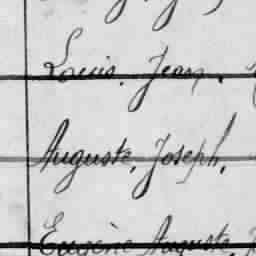 Louis, Jean,
Auguste, Joseph,
Eugène Auguste,